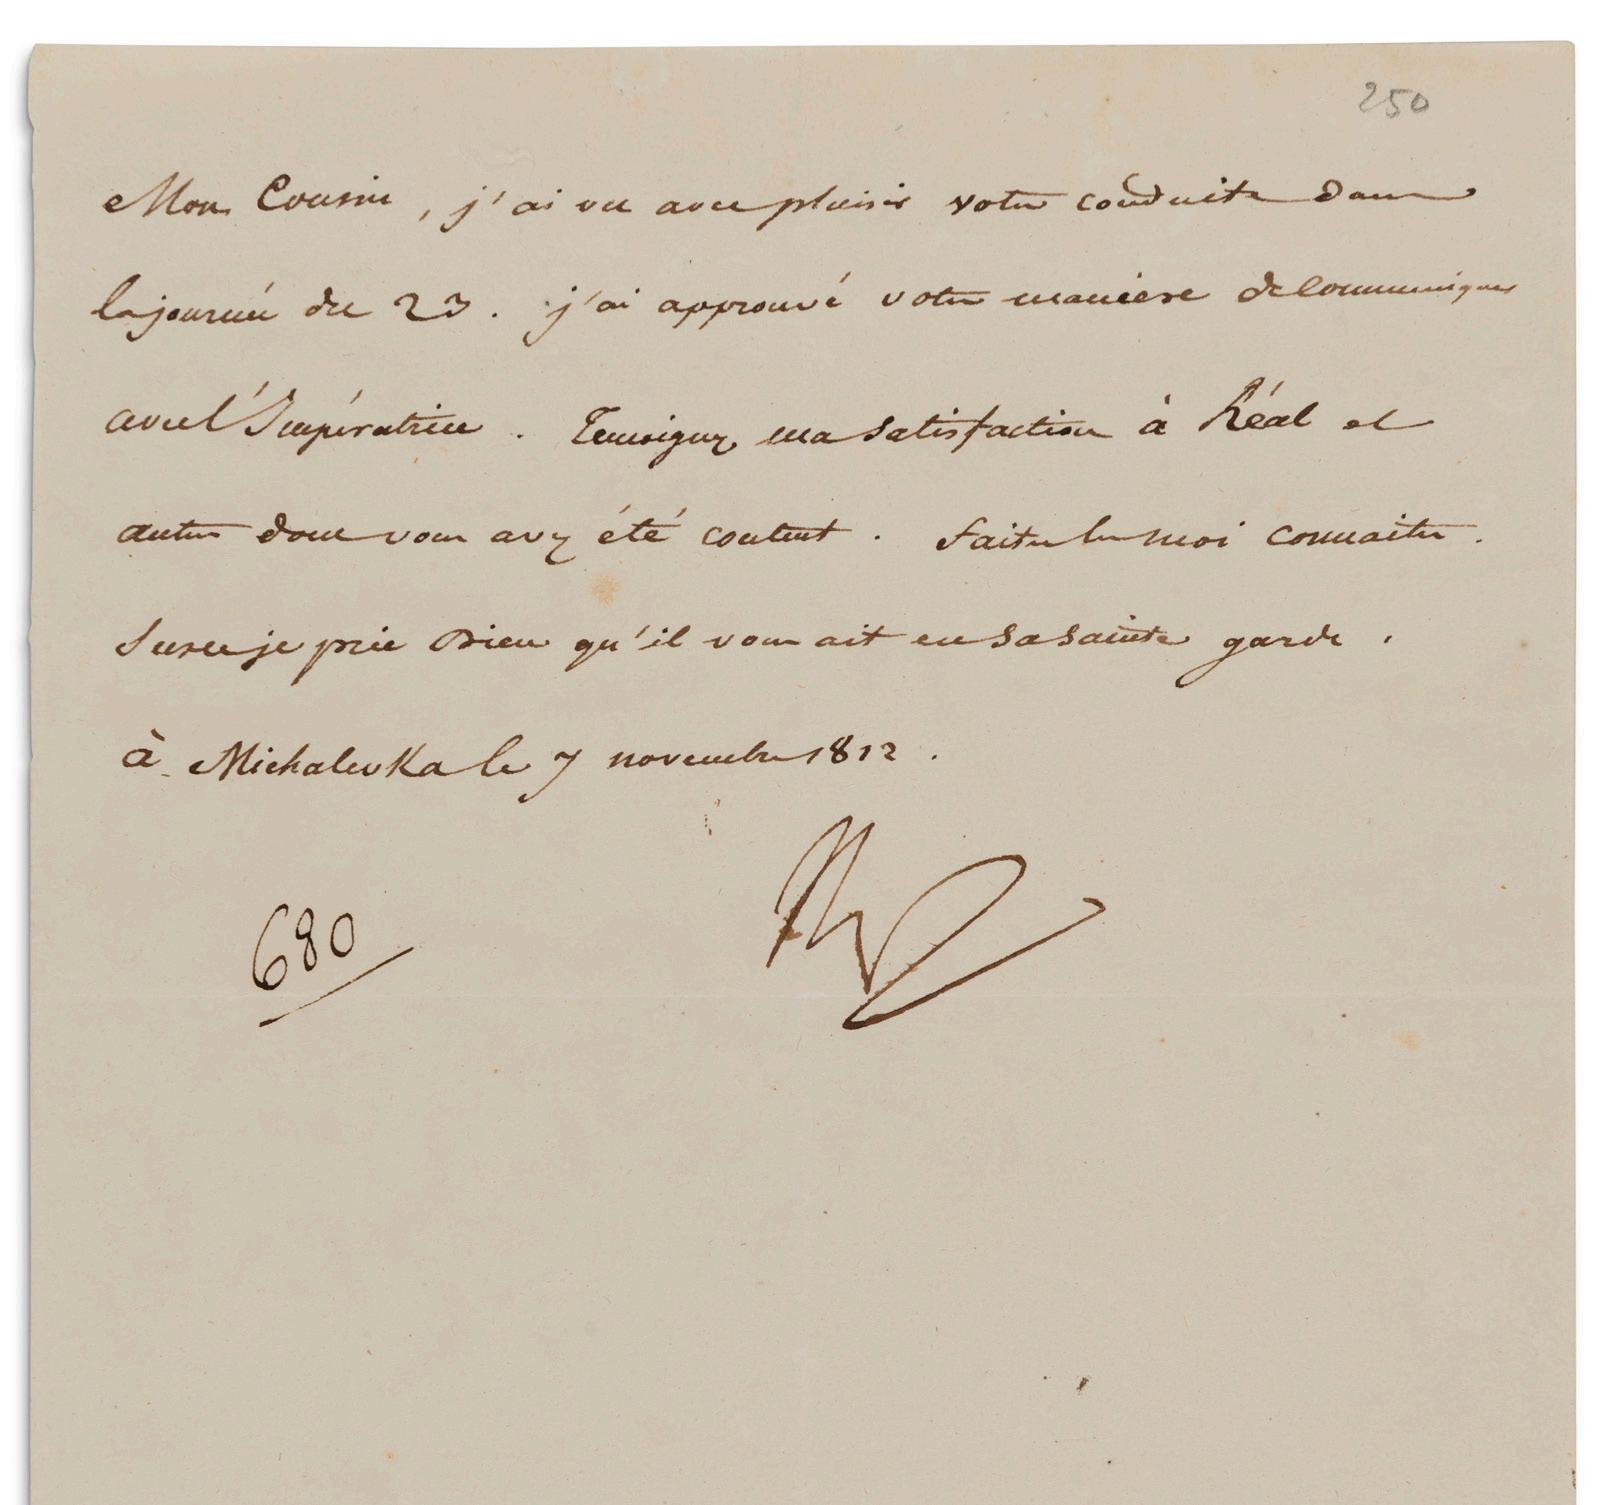 250
Mon Cousin, j'ai vu avec plaisir votre conduite dans
la journée du 23. j'ai approuvé votre manière de communiquer
avec l'Impératrice. Temoignez ma satisfaction à Réal et
autres dont vous avez été content. faites les moi connaitre.
Sur ce je prie Dieu qu'il vous ait en sa sainte garde.
à Michalevka le 7 novembre 1812.
680